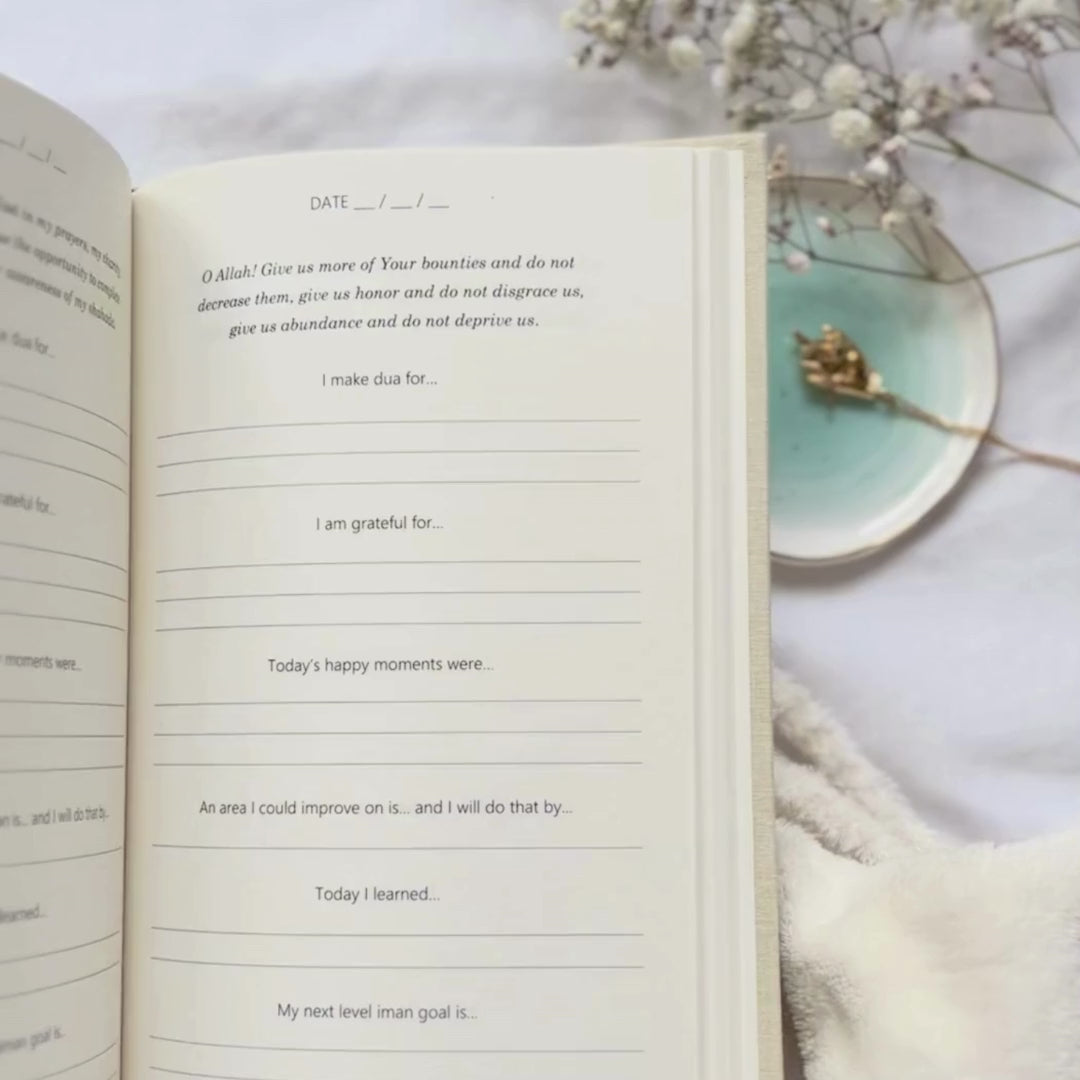 __/__/__
in my prayers, my charity,
the opportunity to complete
awareness of my shahada.
dua for...
grateful for...
moments were...
is... and I will do that by...
learned...
iman goal is...
DATE __ / __ / __
O Allah! Give us more of Your bounties and do not
decrease them, give us honor and do not disgrace us,
give us abundance and do not deprive us.
I make dua for...
I am grateful for...
Today's happy moments were...
An area I could improve on is... and I will do that by...
Today I learned...
My next level iman goal is...